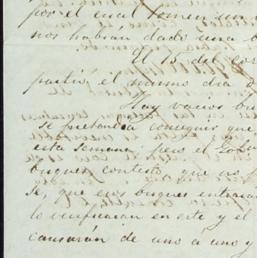 por el cual tomen un
nos habian dado una
El 15 del cor
partió el mismo dia
Hay varios bu
se pueda conseguir que
esta semana; pero el Go
buques contestó, que no
se, que esos buques entrarán
lo verificarán en este y el
causarán de uno a uno y